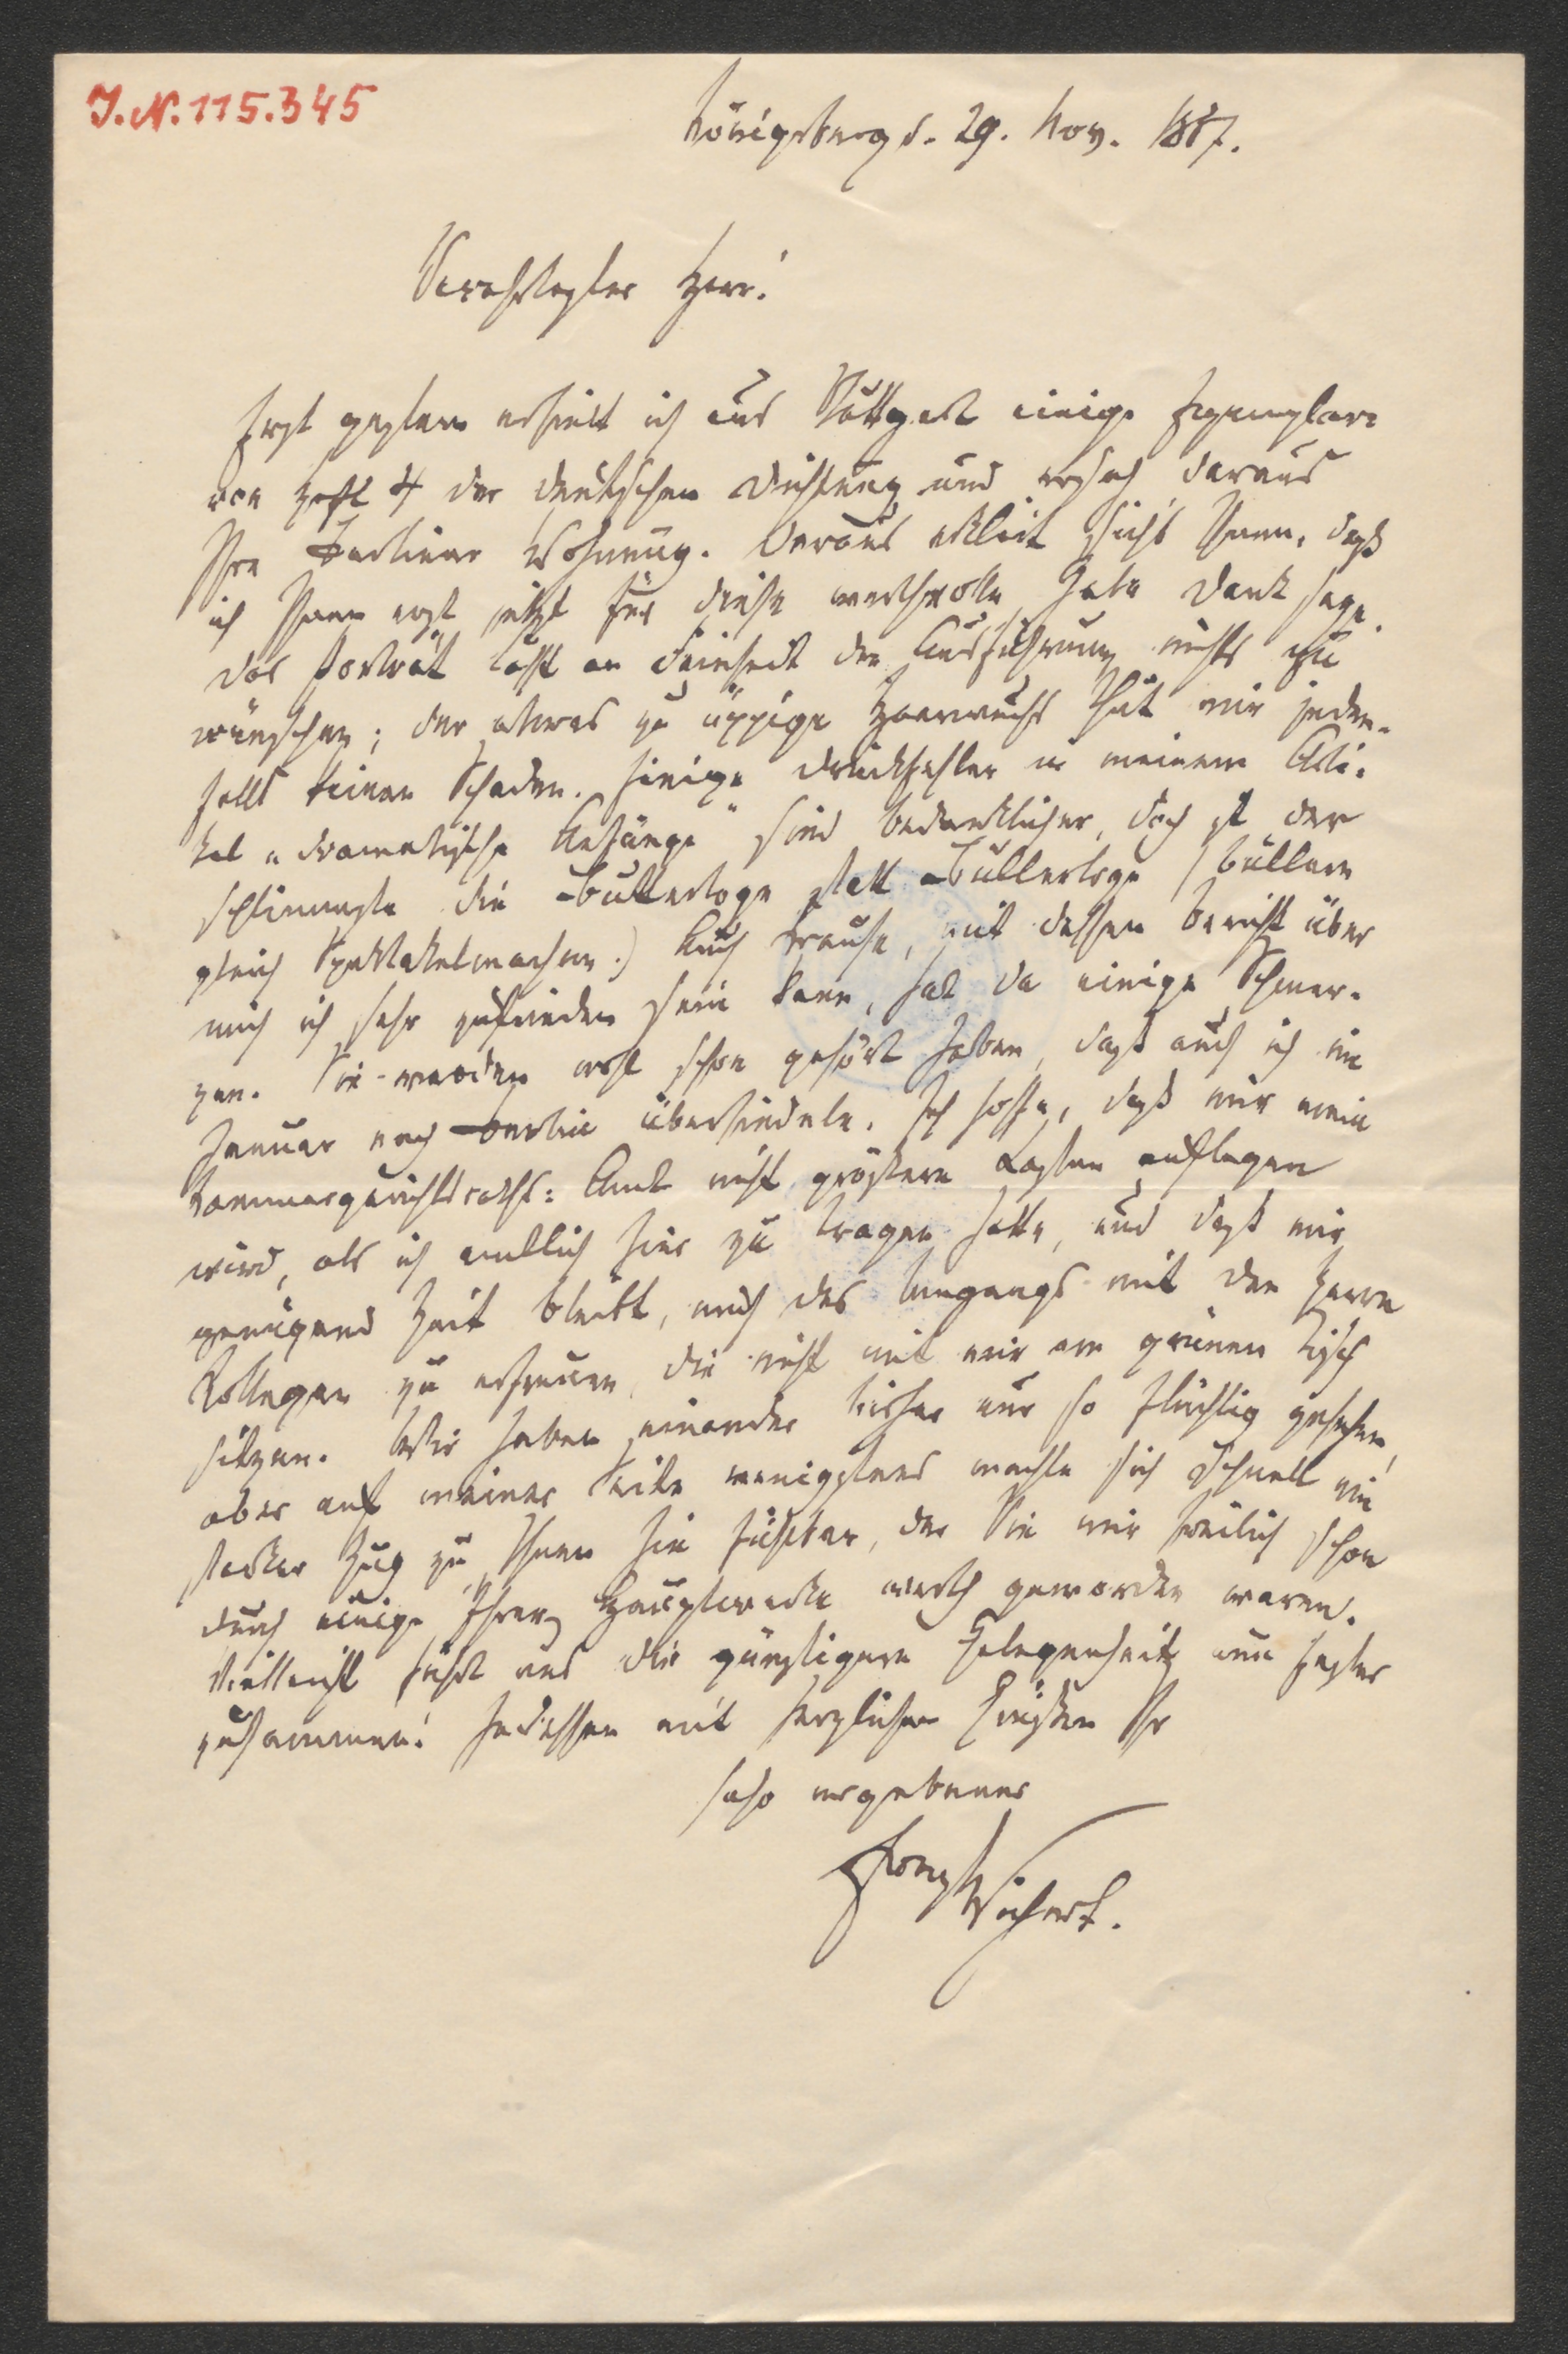 J.N. 115.345
Königsberg d. 29. Nov. 1887.
Verehrtester Herr!
Erst gestern erhielt ich aus Stuttgart einige Exemplare
von Heft 4 der deutschen Dichtung und ersah daraus
Ihre Berliner Wohnung. Daraus erklärt sich's Ihnen, daß
ich Ihnen erst jetzt für diese werthvolle Gabe Dank sage.
Das Porträt läßt an Feinheit der Ausführung nichts zu
wünschen; der etwas zu üppige Haarwuchs thut mir jeden-
falls keinen Schaden. Einige Druckfehler in meinem Arti-
kel „dramatische Anfänge" sind bedenklicher, doch ist der
schlimmste die Butterloge statt Bullerloge (bullern
gleich Spektakelmachen.) Auch Krause, mit dessen Bericht über
mich ich sehr zufrieden sein kann, hat da einige Schmer-
zen. Sie werden wohl schon gehört haben, daß auch ich im
Januar nach Berlin übersiedele. Ich hoffe, daß mir mein
Kammergerichtsraths-Amt nicht größere Lasten auflegen
wird, als ich amtlich hier zu tragen hatte, und daß mir
genügend Zeit bleibt, mich des Umgangs mit den Herrn
Kollegen zu erfreuen, die nicht mit mir am grünen Tisch
sitzen. Wir haben einander bisher nur so flüchtig gesehen,
aber auf meiner Seite wenigstens machte sich schnell ein
starker Zug zu Ihnen hin fühlbar, der Sie mir freilich schon
durch einige Ihrer Hauptwerke werth geworden waren.
Vielleicht führt uns die günstigere Gelegenheit nun fester
zusammen! Indessen mit herzlichen Grüßen Ihr
sehr ergebener
Ernst Wichert.